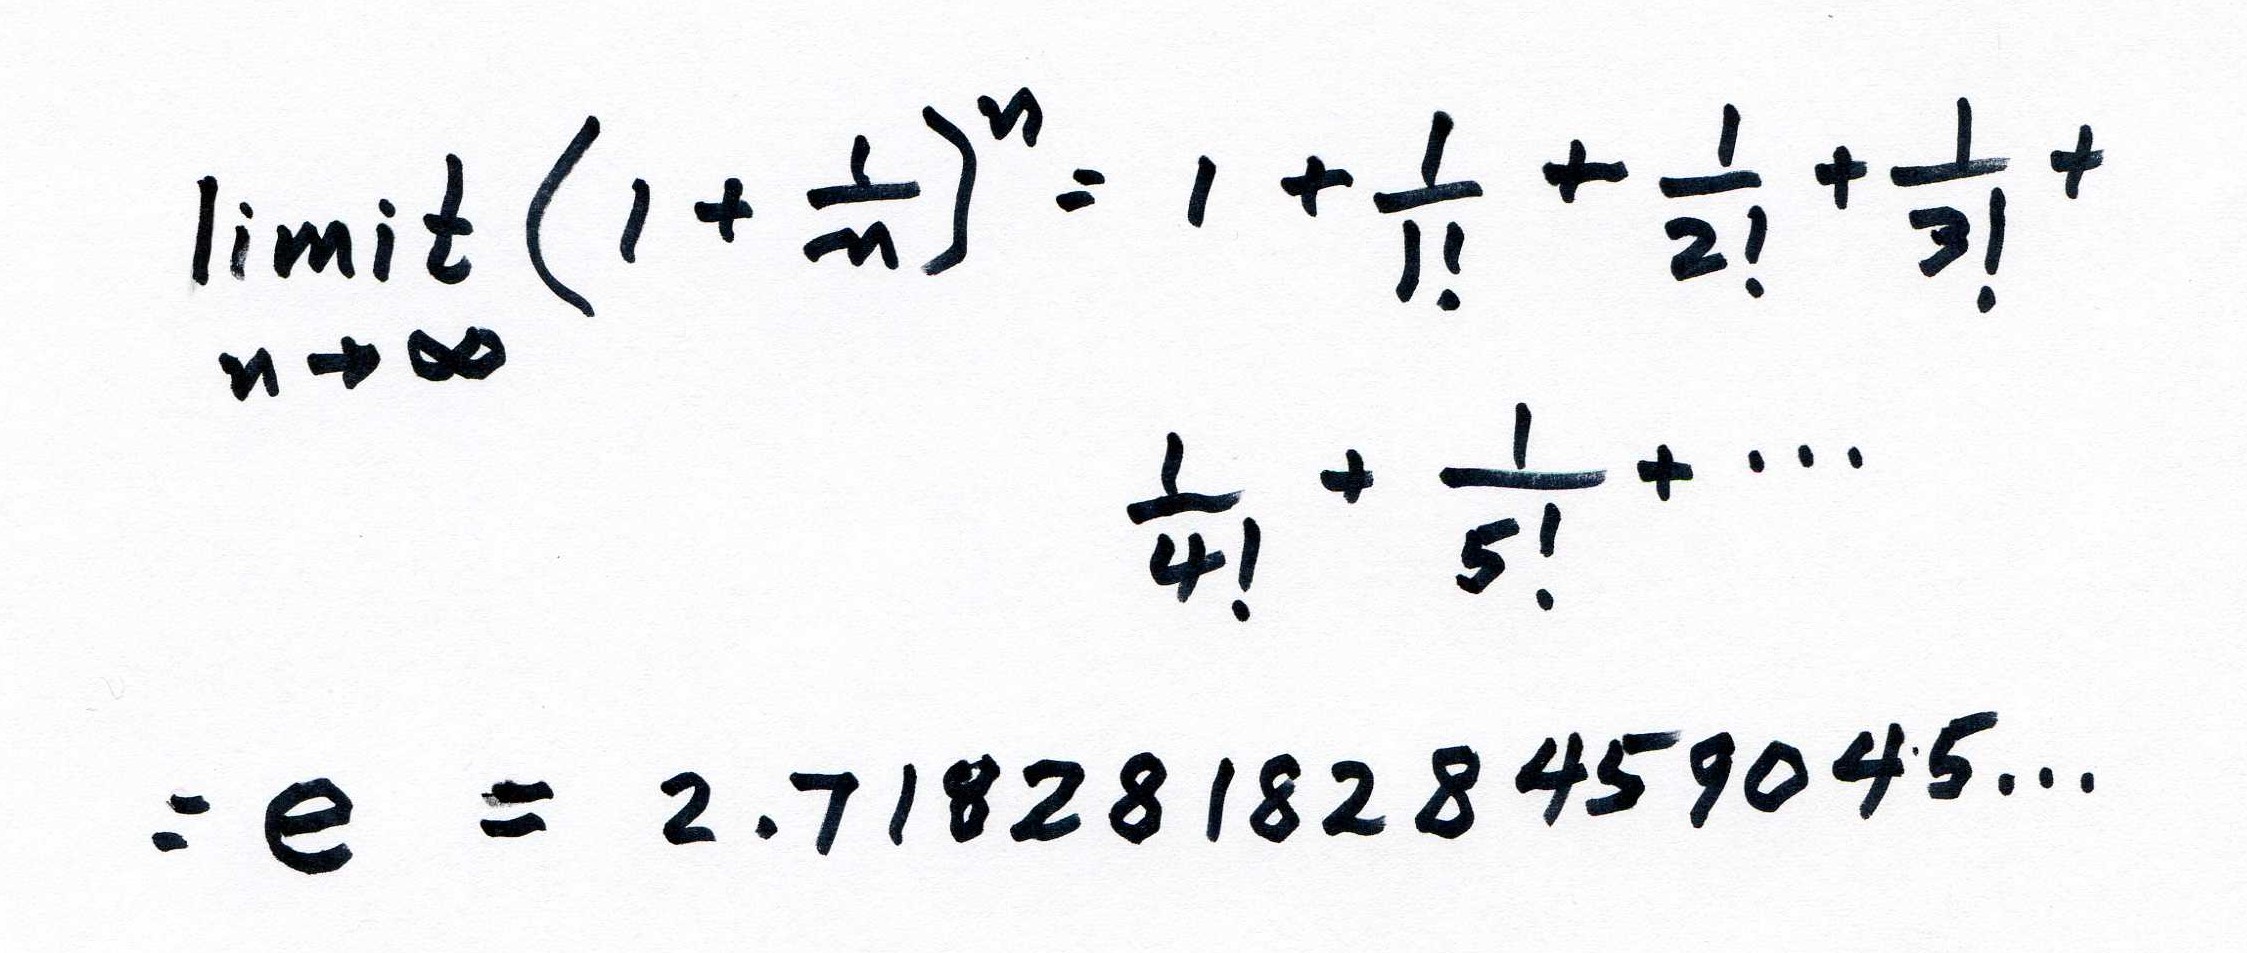 limit (1 + 1/n)^n = 1 + 1/1! + 1/2! + 1/3! +
n → ∞
1/4! + 1/5! + ...
= e = 2.718281828459045...